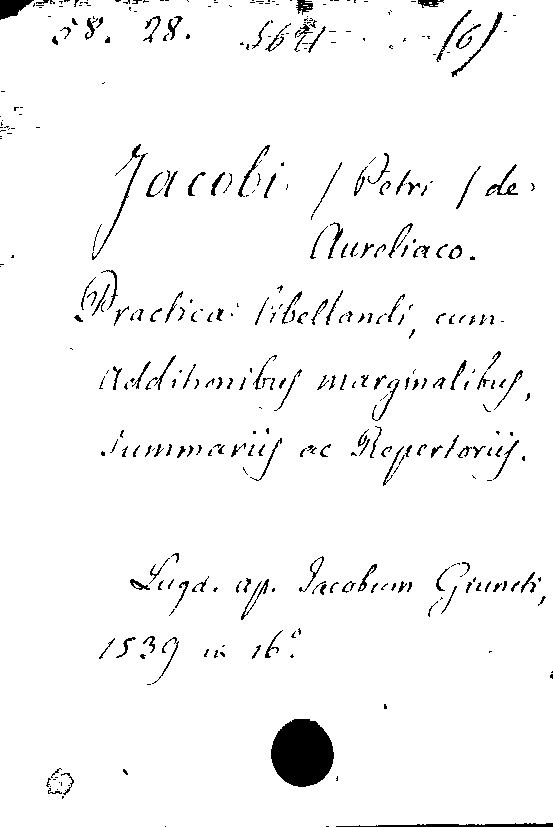 58. 28. (6)
Jacobi / Petri / de
Aureliaco.
Practica libellandi, cum
Additionibus marginalibus,
summariis ac Repertoriis.
Lugd. ap. Jacobum Giuncti,
1539 in 16°.